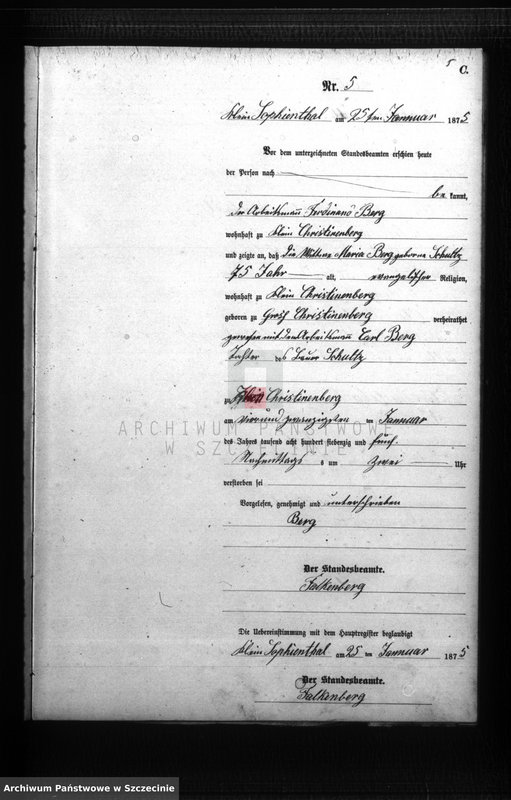 5 C.
Nr. 5
Klein Sophienthal am 25ten Januar 1875
Vor dem unterzeichneten Standesbeamten erschien heute
der Person nach
bekannt,
der Arbeitsmann Ferdinand Berg
wohnhaft zu Klein Christinenberg
und zeigte an, daß die Wittwe Maria Berg geborne Schultz
75 Jahr alt, evangelischer Religion,
wohnhaft zu Klein Christinenberg
geboren zu Groß Christinenberg verheirathet
gewesen mit dem Arbeitsmann Carl Berg
Tochter des Bauer Schultz
zu Klein Christinenberg
am vierundzwanzigsten ten Januar
des Jahres tausend acht hundert siebenzig und fünf
Nachmittags um zwei Uhr
verstorben sei
Vorgelesen, genehmigt und unterschrieben
Berg
Der Standesbeamte.
Falkenberg
Die Uebereinstimmung mit dem Hauptregister beglaubigt
Klein Sophienthal am 25 ten Januar 1875
Der Standesbeamte.
Falkenberg
ARCHIWUM PAŃSTWOWE
W SZCZECINIE
Archiwum Państwowe w Szczecinie